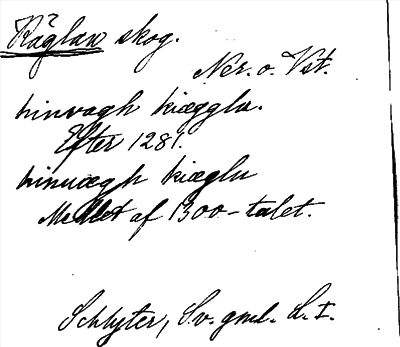 Råglaw skog.
Ner. o. Vst.
hinvægh kiægglu.
Efter 1281.
hinuægh kiæglu
Medlet af 1300-talet.
Schlyter, Sv. gml. L. I.